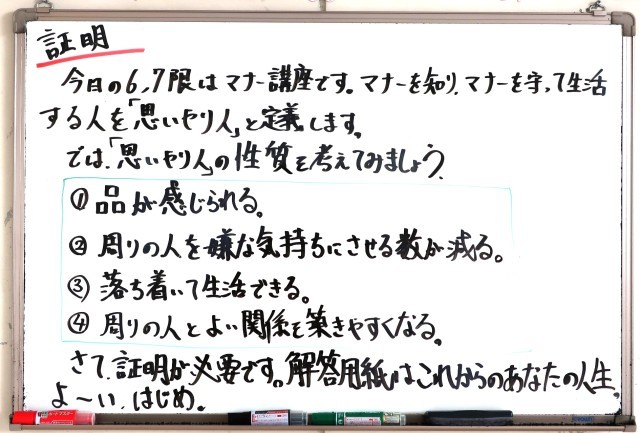 証明
今日の6,7限はマナー講座です。マナーを知り、マナーを守って生活
する人を「思いやり人」と定義します。
では、「思いやり人」の性質を考えてみましょう。
① 品が感じられる。
② 周りの人を嫌な気持ちにさせる数が減る。
③ 落ち着いて生活できる。
④ 周りの人とよい関係を築きやすくなる。
さて、証明が必要です。解答用紙はこれからのあなたの人生。
よ〜い、はじめ。